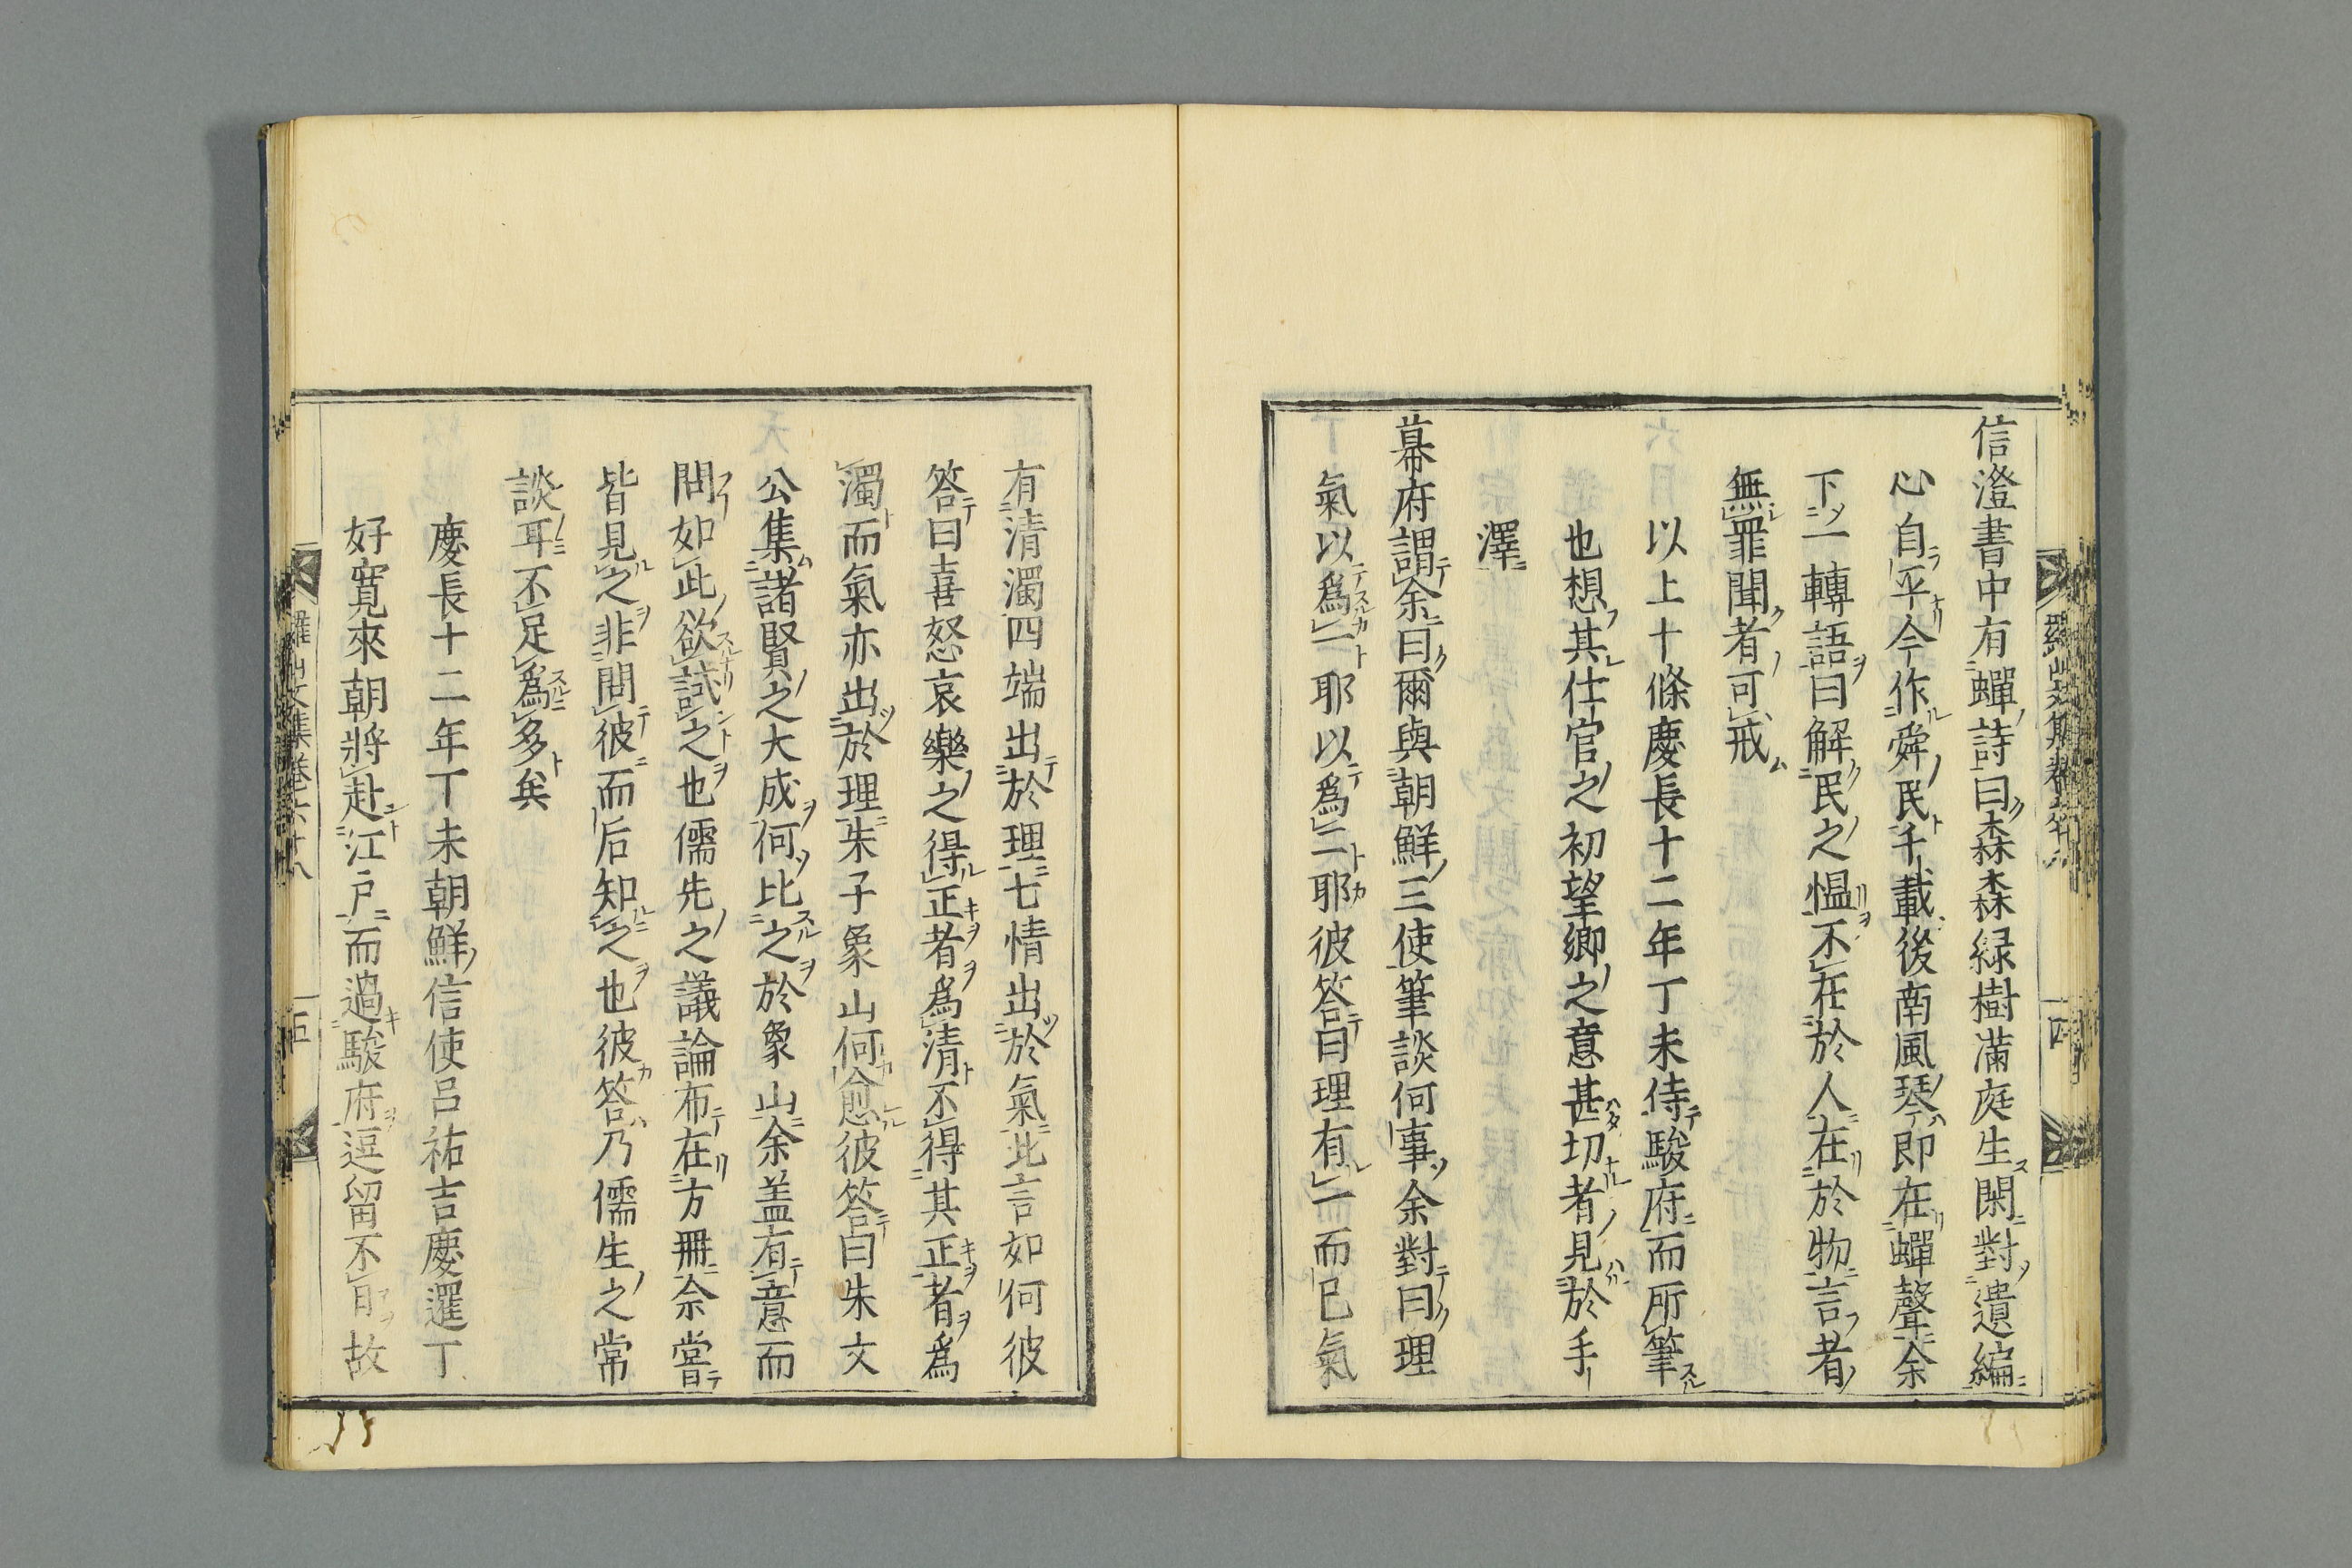 信澄書中有蟬詩曰森森緑樹滿庭生閑對遺編
心自平今作舜民千載後南風琴即在蟬聲余
下一轉語曰解民之愠不在於人在於物言者
無罪聞者可戒
以上十條慶長十二年丁未侍駿府而所筆
也想其仕官之初望卿之意甚切者見於手
澤
幕府謂余曰爾與朝鮮三使筆談何事余對曰理
氣以爲一耶以爲二耶彼答曰理有一而已氣
有清濁四端出於理七情出於氣此言如何彼
答曰喜怒哀樂之得正者爲清不得其正者爲
濁而氣亦出於理朱子象山何愈彼答曰朱文
公集諸賢之大成何比之於象山余盖有意而
問如此欲試之也儒先之議論布在方冊余嘗
皆見之非問彼而后知之也彼答乃儒生之常
談耳不足爲多矣
慶長十二年丁未朝鮮信使呂祐吉慶暹丁
好寛來朝將赴江戸而過駿府逗留不旬故
羅山文集卷六十八